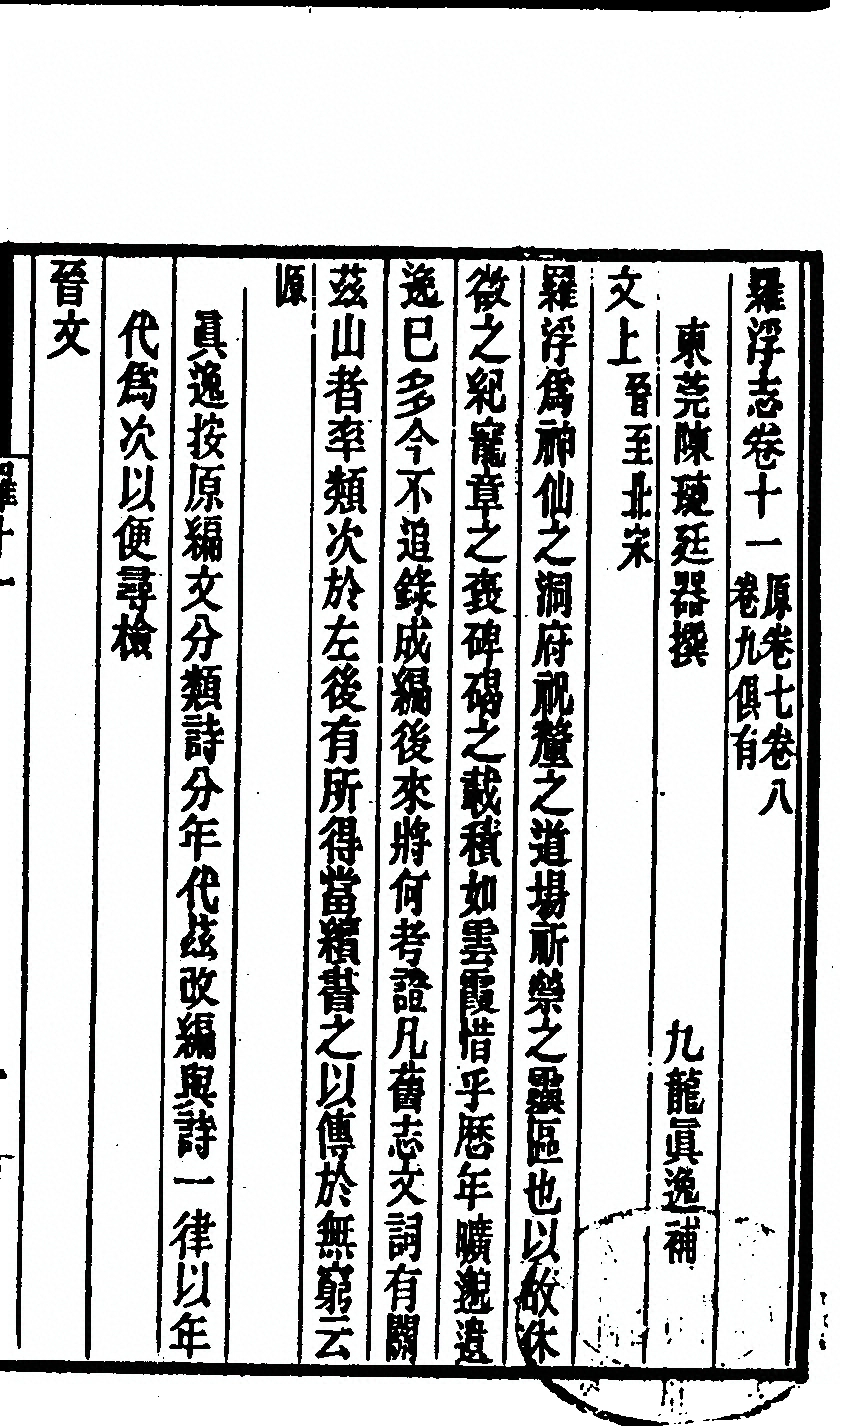 羅浮志卷十一原卷七卷八卷九俱有
東莞陳璉廷器撰　九龍眞逸補
文上晉至北宋
羅浮爲神仙之洞府祝釐之道場祈禜之靈區也以故休
徵之紀寵章之褒碑碣之載積如雲霞惜乎曆年曠邈遺
逸已多今不追錄成編後來將何考證凡舊志文詞有關
茲山者率類次於左後有所得當續書之以傳於無窮云
原
眞逸按原編文分類詩分年代茲改編與詩一律以年
代爲次以便尋檢
晉文